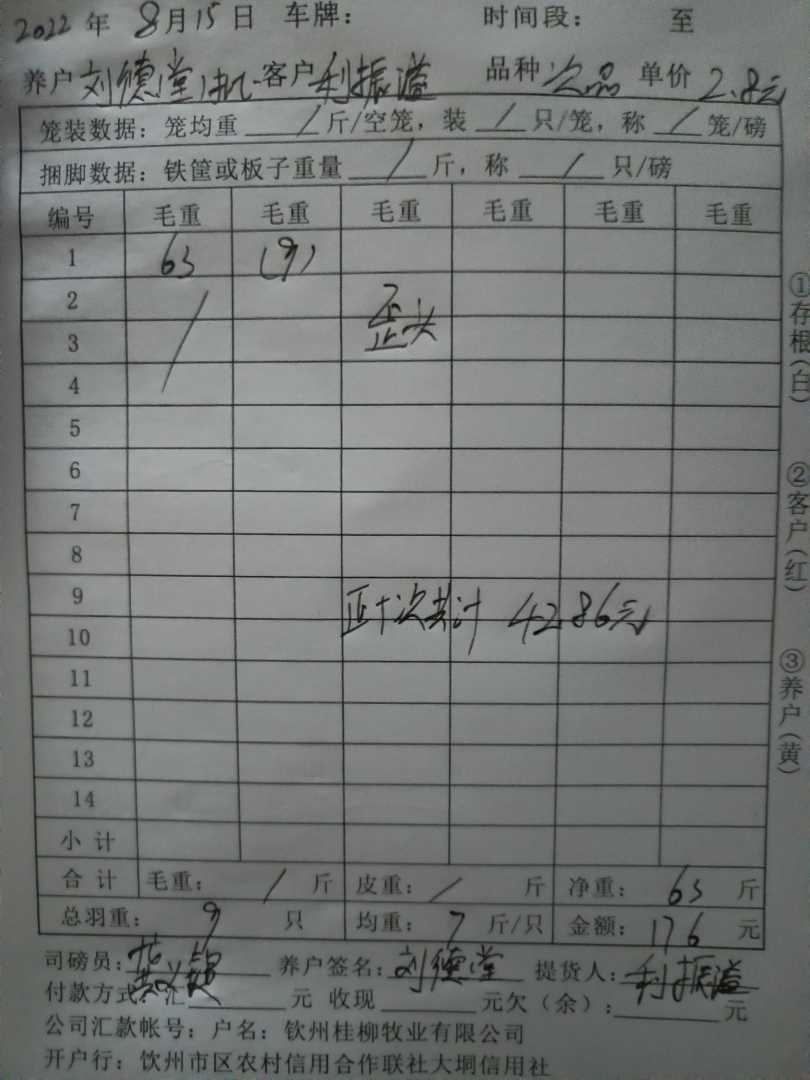 2022 年 8 月 15 日 车牌: 时间段: 至
养户 刘德堂 客户 利振溢 品种 次品 单价 2.8元
笼装数据: 笼均重 / 斤/空笼, 装 / 只/笼, 称 / 笼/磅
捆脚数据: 铁筐或板子重量 / 斤, 称 / 只/磅
编号 毛重 毛重 毛重 毛重 毛重 毛重
1 63 (9)
2 /
歪头
3
4
5
6
7
8
9
正+次共计 4286元
10
11
12
13
14
小 计
合 计 毛重: / 斤 皮重: / 斤 净重: 63 斤
总羽重: 9 只 均重: 7 斤/只 金额: 176 元
司磅员: 养户签名: 刘德堂 提货人: 利振溢
付款方式: 汇 元 收现 元欠(余): 元
公司汇款帐号: 户名: 钦州桂柳牧业有限公司
开户行: 钦州市区农村信用合作联社大垌信用社
①存根(白)
②客户(红)
③养户(黄)